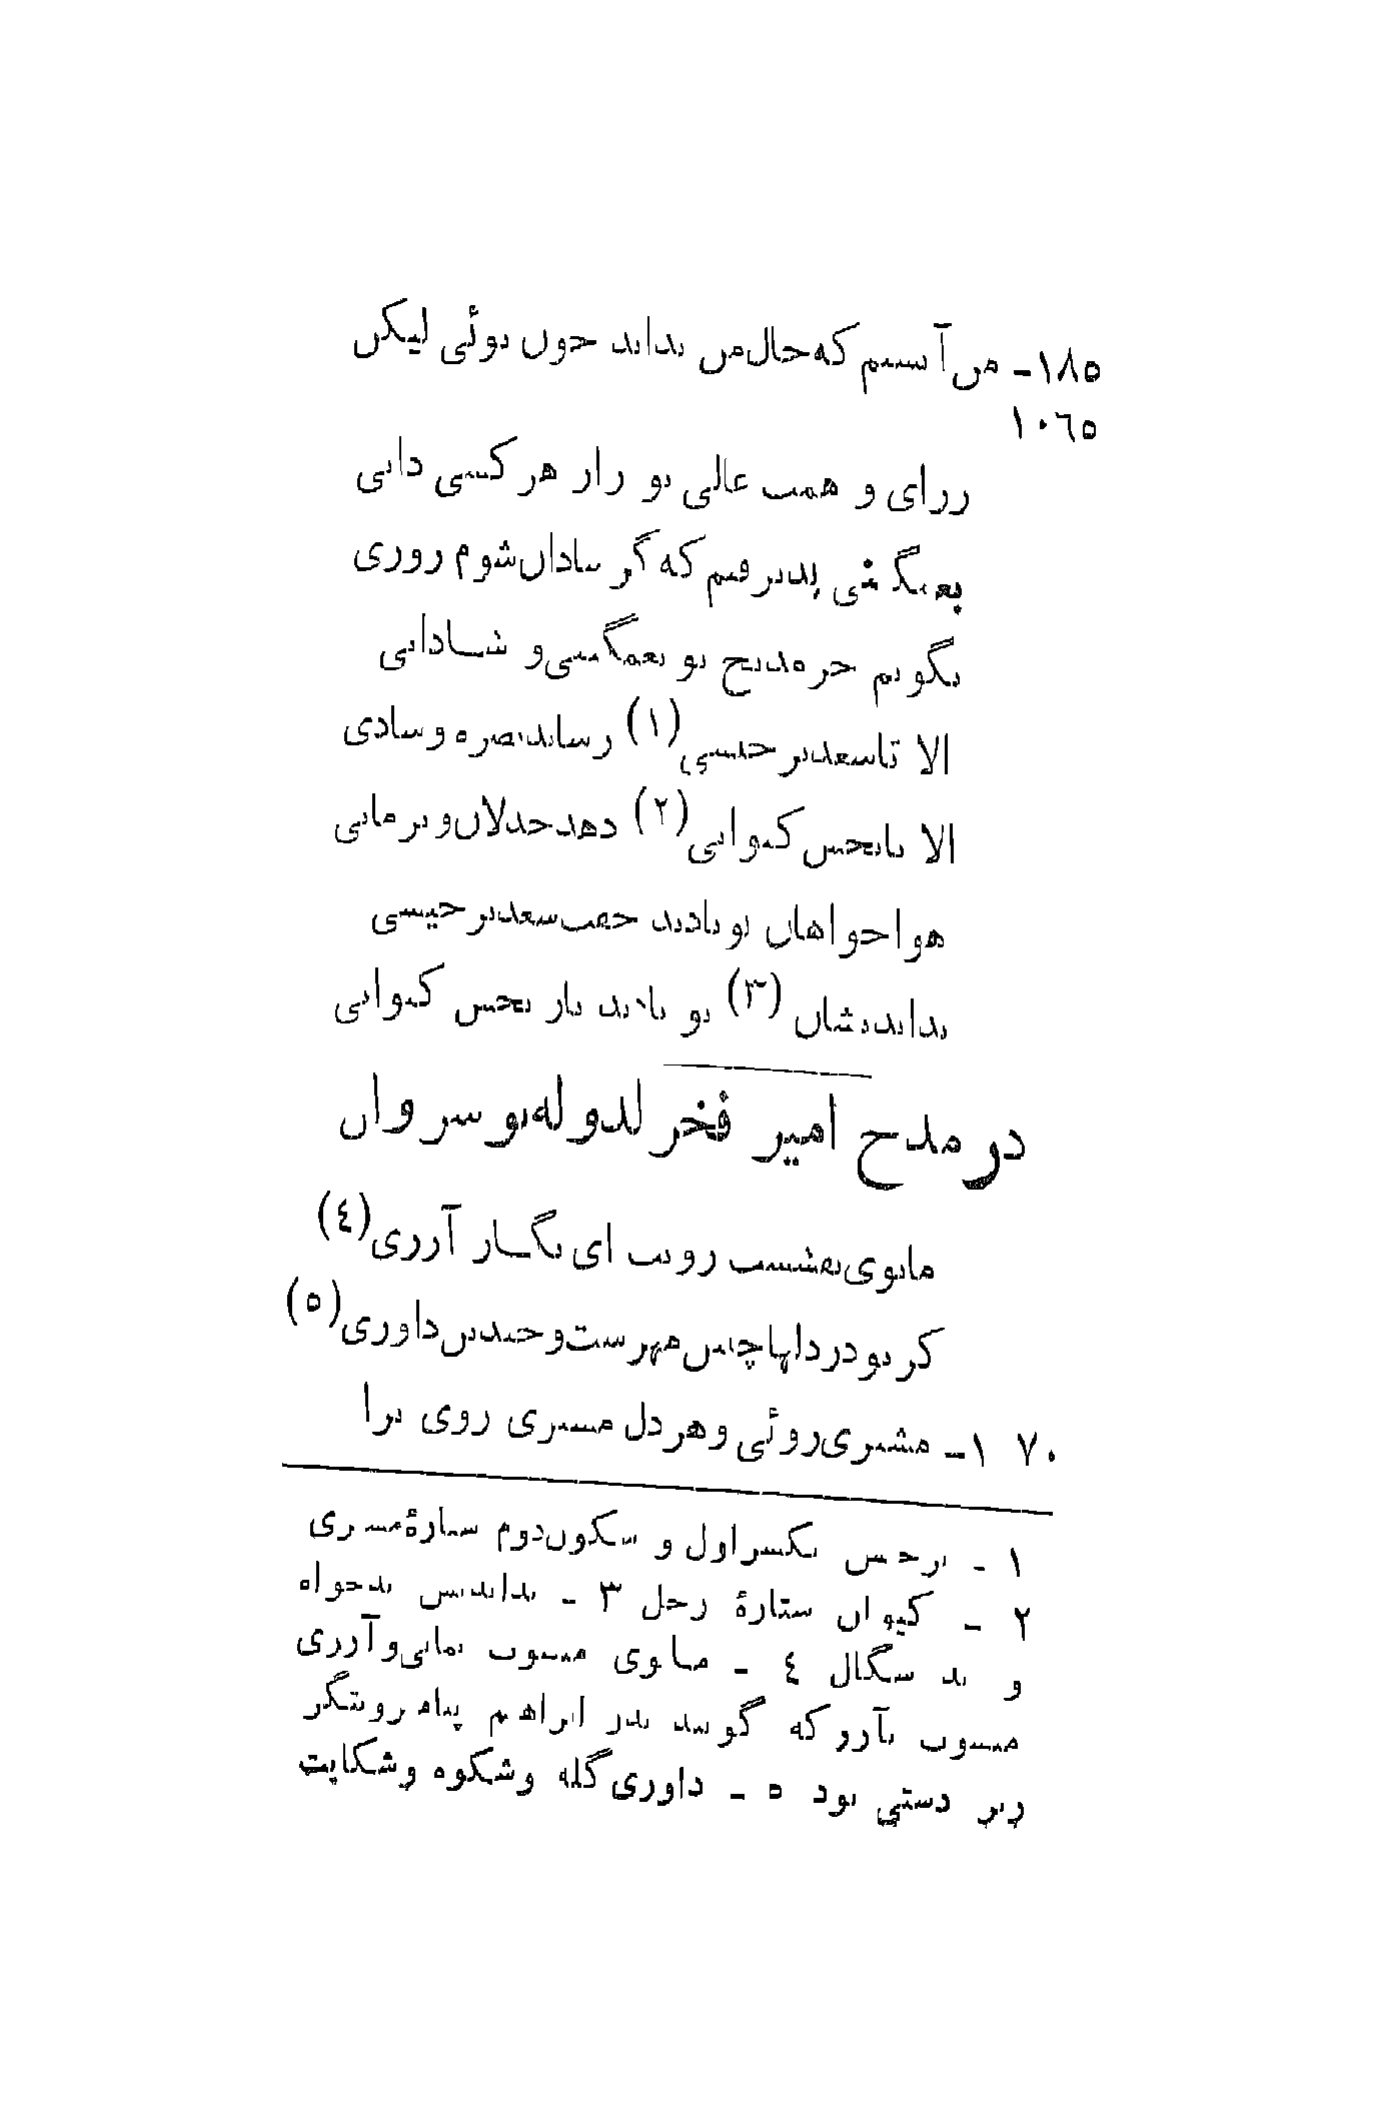 ۱۸۵- من آنستم که حال من بداند چون توئی لیکن
۱۰٦٥
زرای و همت عالی تو راز هر کسی دانی
پذیرفتم که گر شادان شوم روزی
نگویم جز مدیح تو بغمگینی و شادانی
الا تا سعد برجیسی (۱) رساند نصره و شادی
الا تا نحس کیوانی (۲) دهد خذلان و نرمانی
هواخواهان تو بادند جفت سعد برجیسی
بداندیشان (۳) تو بادند یار نحس کیوانی
در مدح امیر فخرلدوله نوشروان
مانوی نقشست رویت ای نگار آزری (٤)
کز تو در دلها چنین مهرست و چندین داوری (٥)
۱۰۷۰- مشتری روئی و هر دل مشتری روی ترا
۱ - برجیس بکسر اول و سکون دوم ستارهٔ مشتری
۲ - کیوان ستارهٔ زحل ۳ - بداندیش بدخواه
و بد سگال ٤ - مانوی منسوب بمانی و آزری
منسوب بآزر که گویند پدر ابراهیم پیامبر و بتگر
زبر دستی بود ٥ - داوری گله و شکوه و شکایت